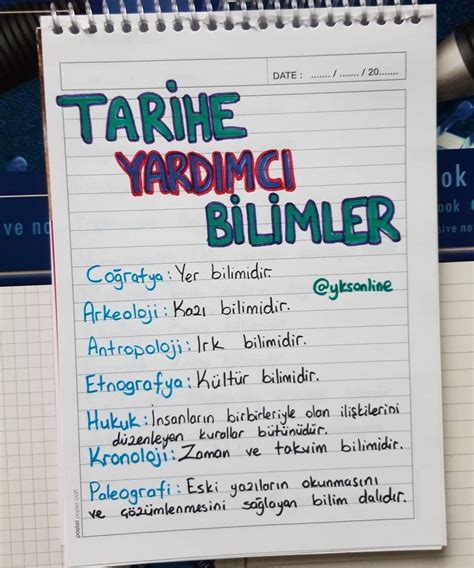 DATE : ....... / ....... / 20.......
TARİHE
YARDIMCI
BİLİMLER
Coğrafya : Yer bilimidir.
@yksonline
Arkeoloji : Kazı bilimidir.
Antropoloji : Irk bilimidir.
Etnografya : Kültür bilimidir.
Hukuk : İnsanların birbirleriyle olan ilişkilerini
düzenleyen kurallar bütünüdür.
Kronoloji : Zaman ve takvim bilimidir.
Paleografi : Eski yazıların okunmasını
ve çözümlenmesini sağlayan bilim dalıdır.
ve no
ok
ook
sive no